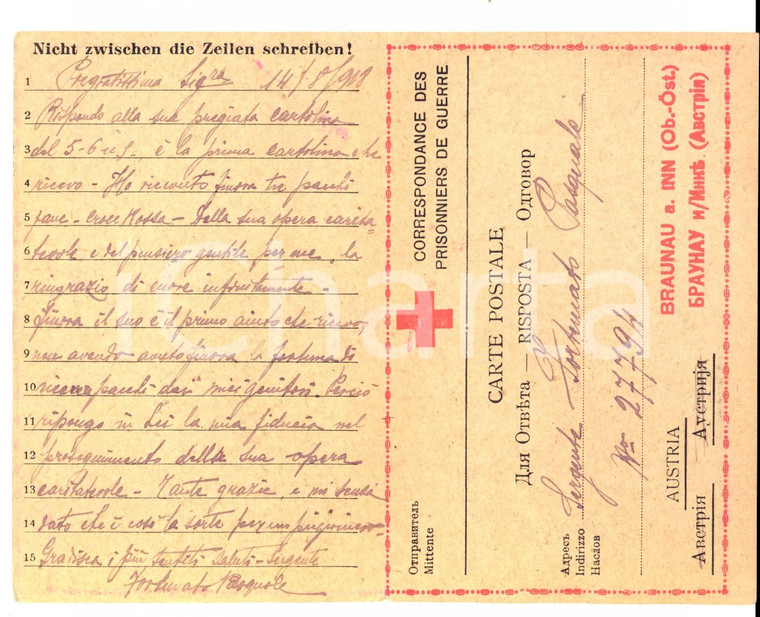 Nicht zwischen die Zeilen schreiben!
1 Pregiatissima Sig.ra 14/8/918
2 Rispondo alla sua pregiata cartolina
3 del 5-6 u.s. è la prima cartolina che
4 ricevo - Ho ricevuto finora tre pacchi
5 pane - Croce Rossa - Della sua opera carita=
6 tevole e del pensiero gentile per me, la
7 ringrazio di cuore infinitamente -
8 Finora il suo è il primo aiuto che ricevo,
9 non avendo avuto finora la fortuna di
10 ricever pacchi dai miei genitori. Perciò
11 ripongo in Lei la mia fiducia nel
12 proseguimento della sua opera
13 caritatevole - Tante grazie, e mi scusi
14 dato che è così la sorte per un prigioniero -
15 Gradisca i più sentiti saluti - Sergente
Fortunato Pasquale
CORRESPONDANCE DES
PRISONNIERS DE GUERRE
Отправитель
Mittente
CARTE POSTALE
Для Отвѣта — RISPOSTA — Одговор
Sergente Fortunato Pasquale
Адресъ
Indirizzo
Наслов
No 27794
BRAUNAU a. INN (Ob.-Öst.)
БРАУНАУ н/Иннѣ (Австрія)
AUSTRIA
Австрія Аустрија
iCharta